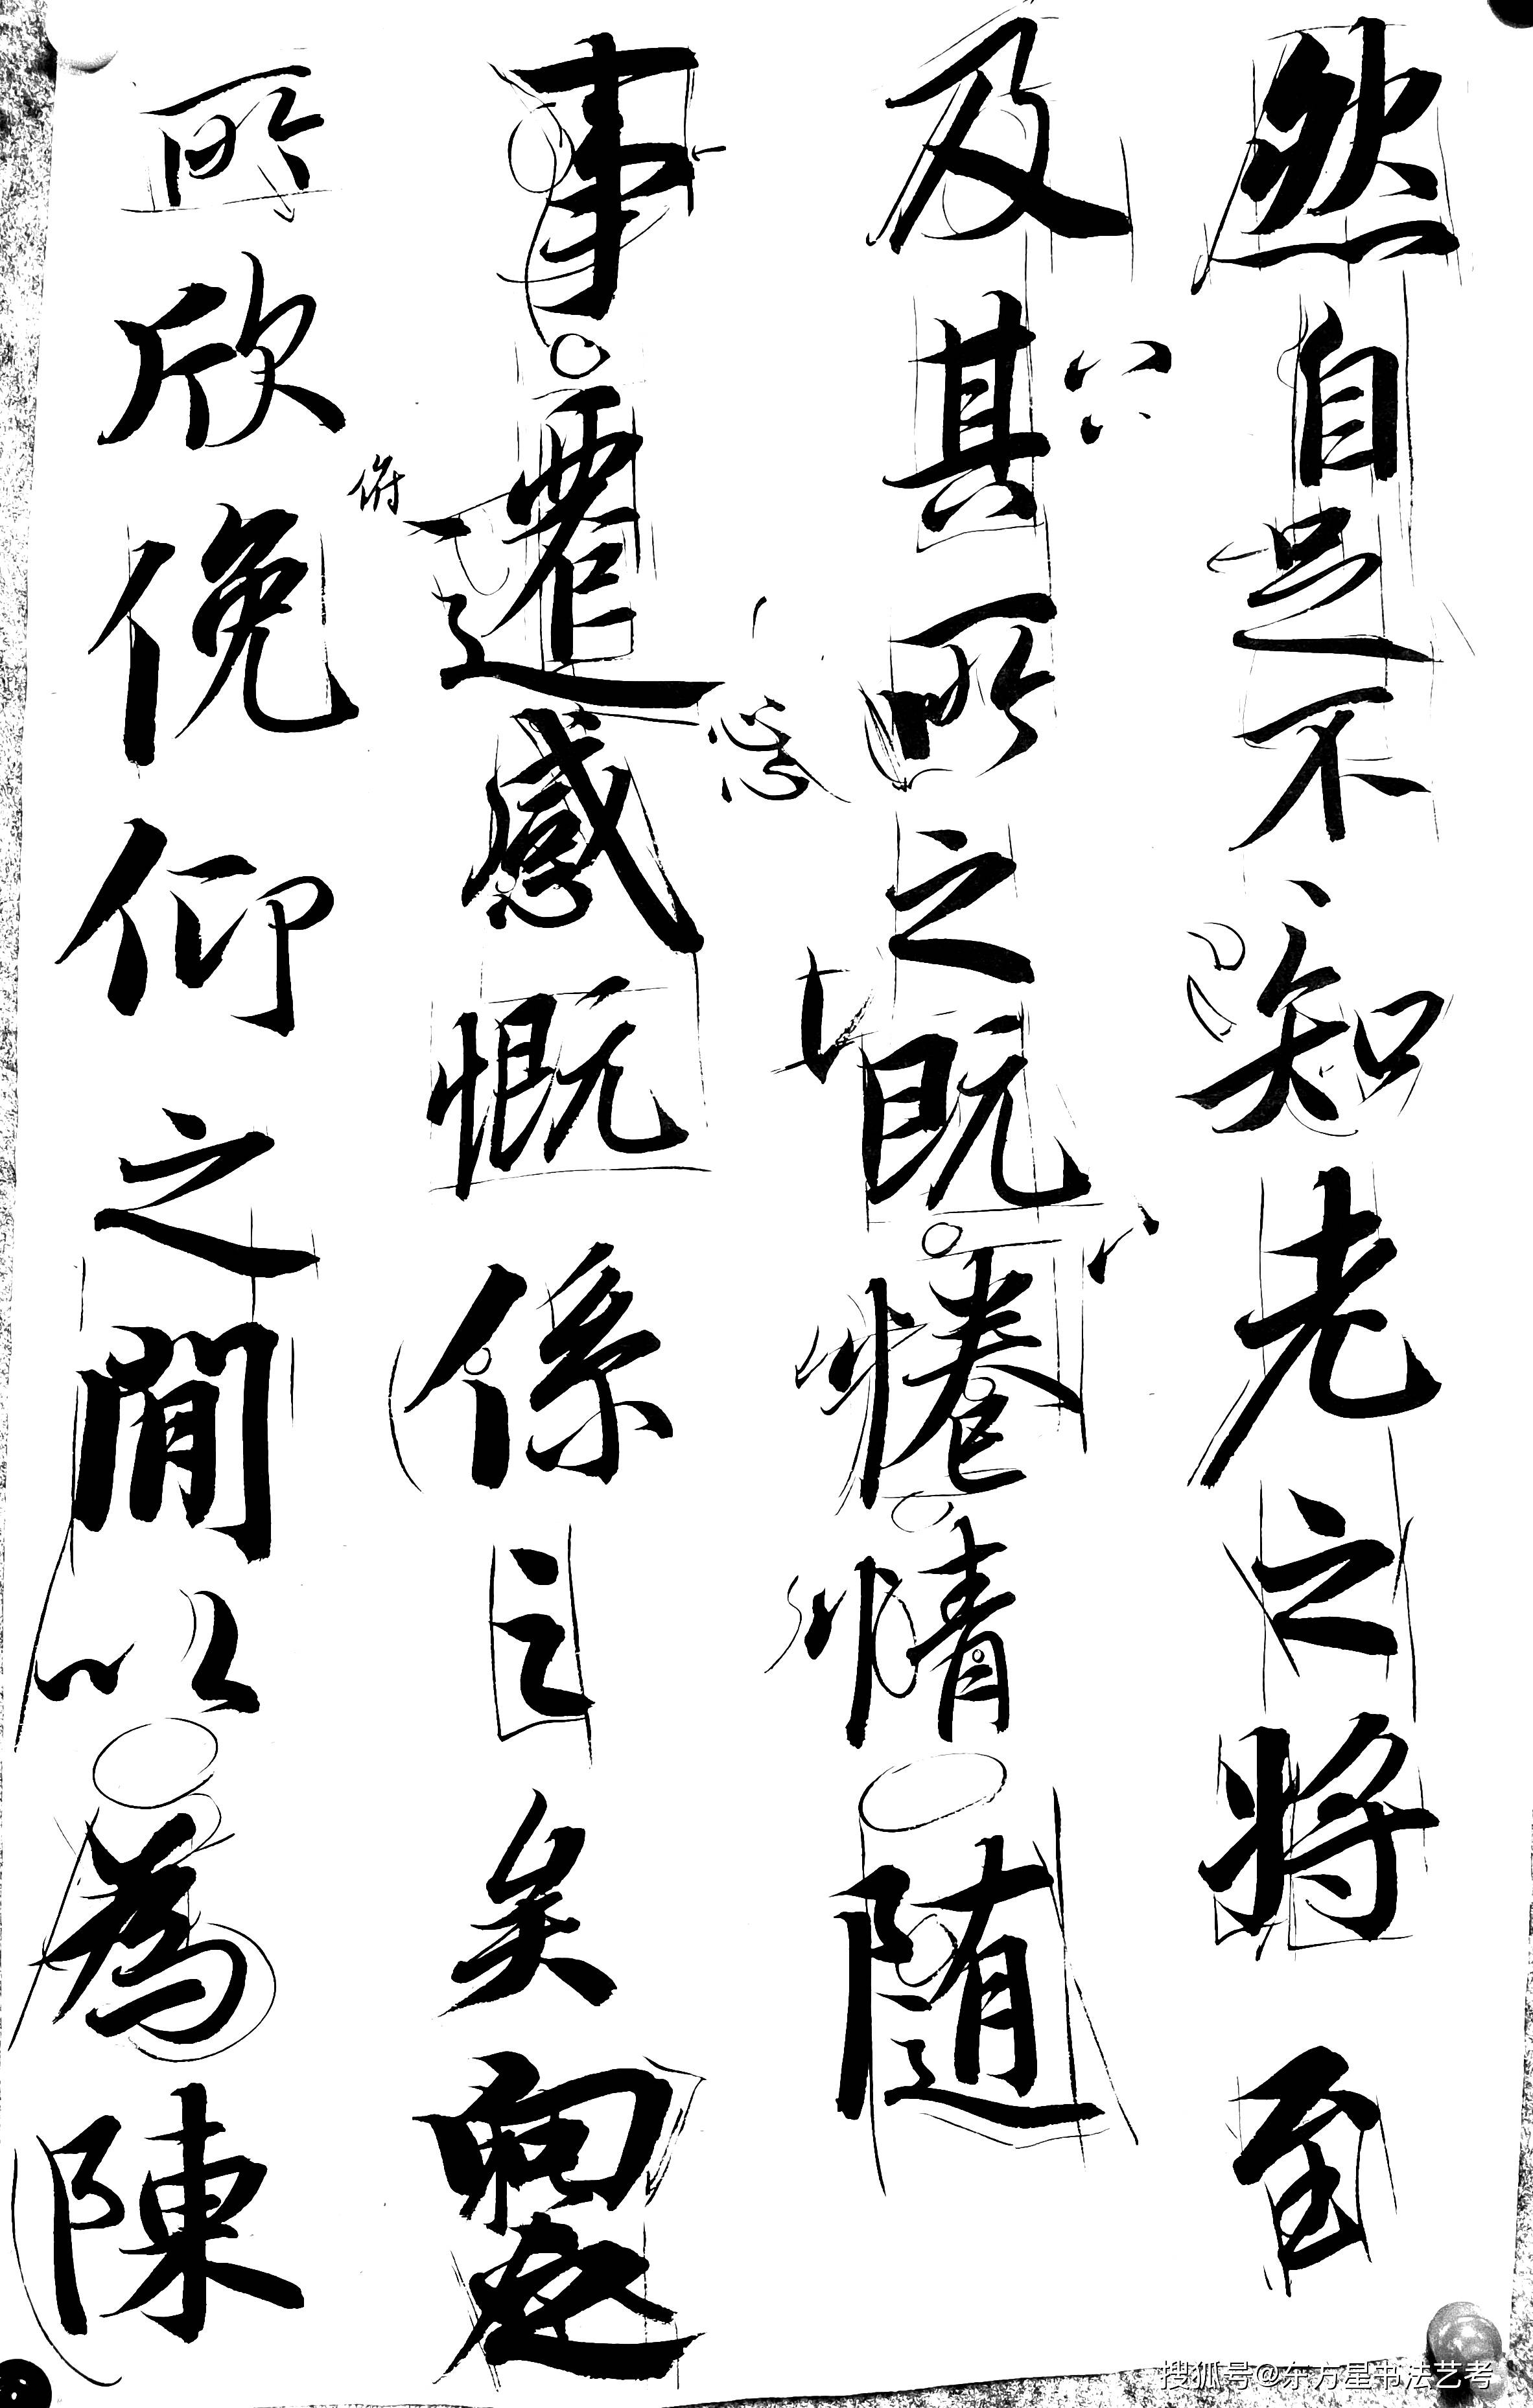 然自足不知老之将至
及其所之既惓情随
事遷感慨係之矣向之
所欣俛仰之間以為陳
俯
搜狐号@东方星书法艺考